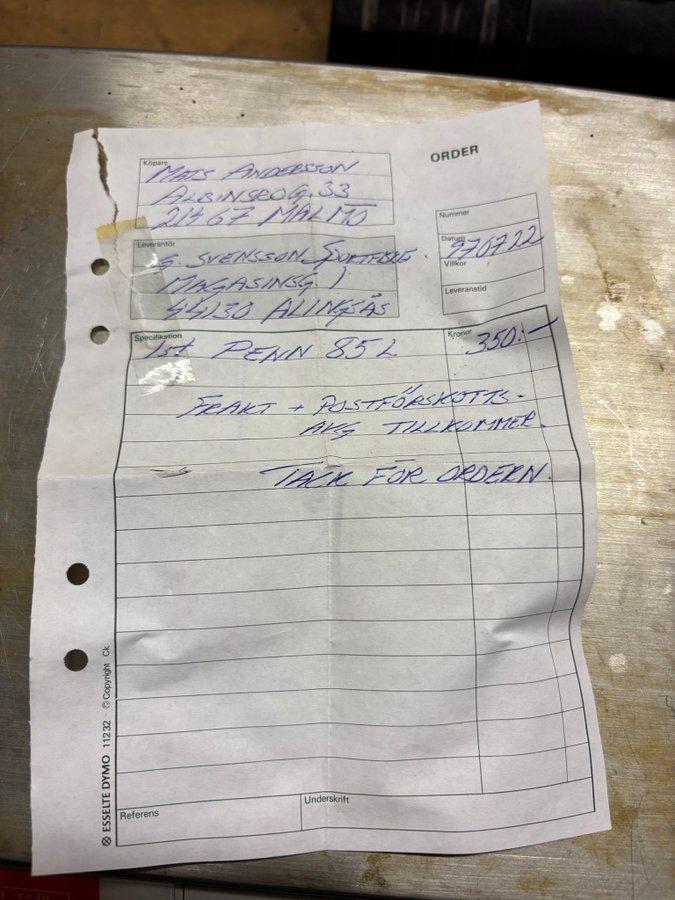 ORDER
Köpare
MATS ANDERSSON
ALBINSROG. 33
214 67 MALMÖ
Nummer
Datum
970722
Villkor
Leveranstid
Leverantör
G. SVENSSON SPORTFISKE
MAGASINSG 1
44130 ALINGSÅS
Specifikation
Kronor
1st PENN 85L 350:-
FRAKT + POSTFÖRSKOTTS-
AVG TILLKOMMER.
TACK FÖR ORDERN.
Referens
Underskrift
ESSELTE DYMO 11232 © Copyright Ck